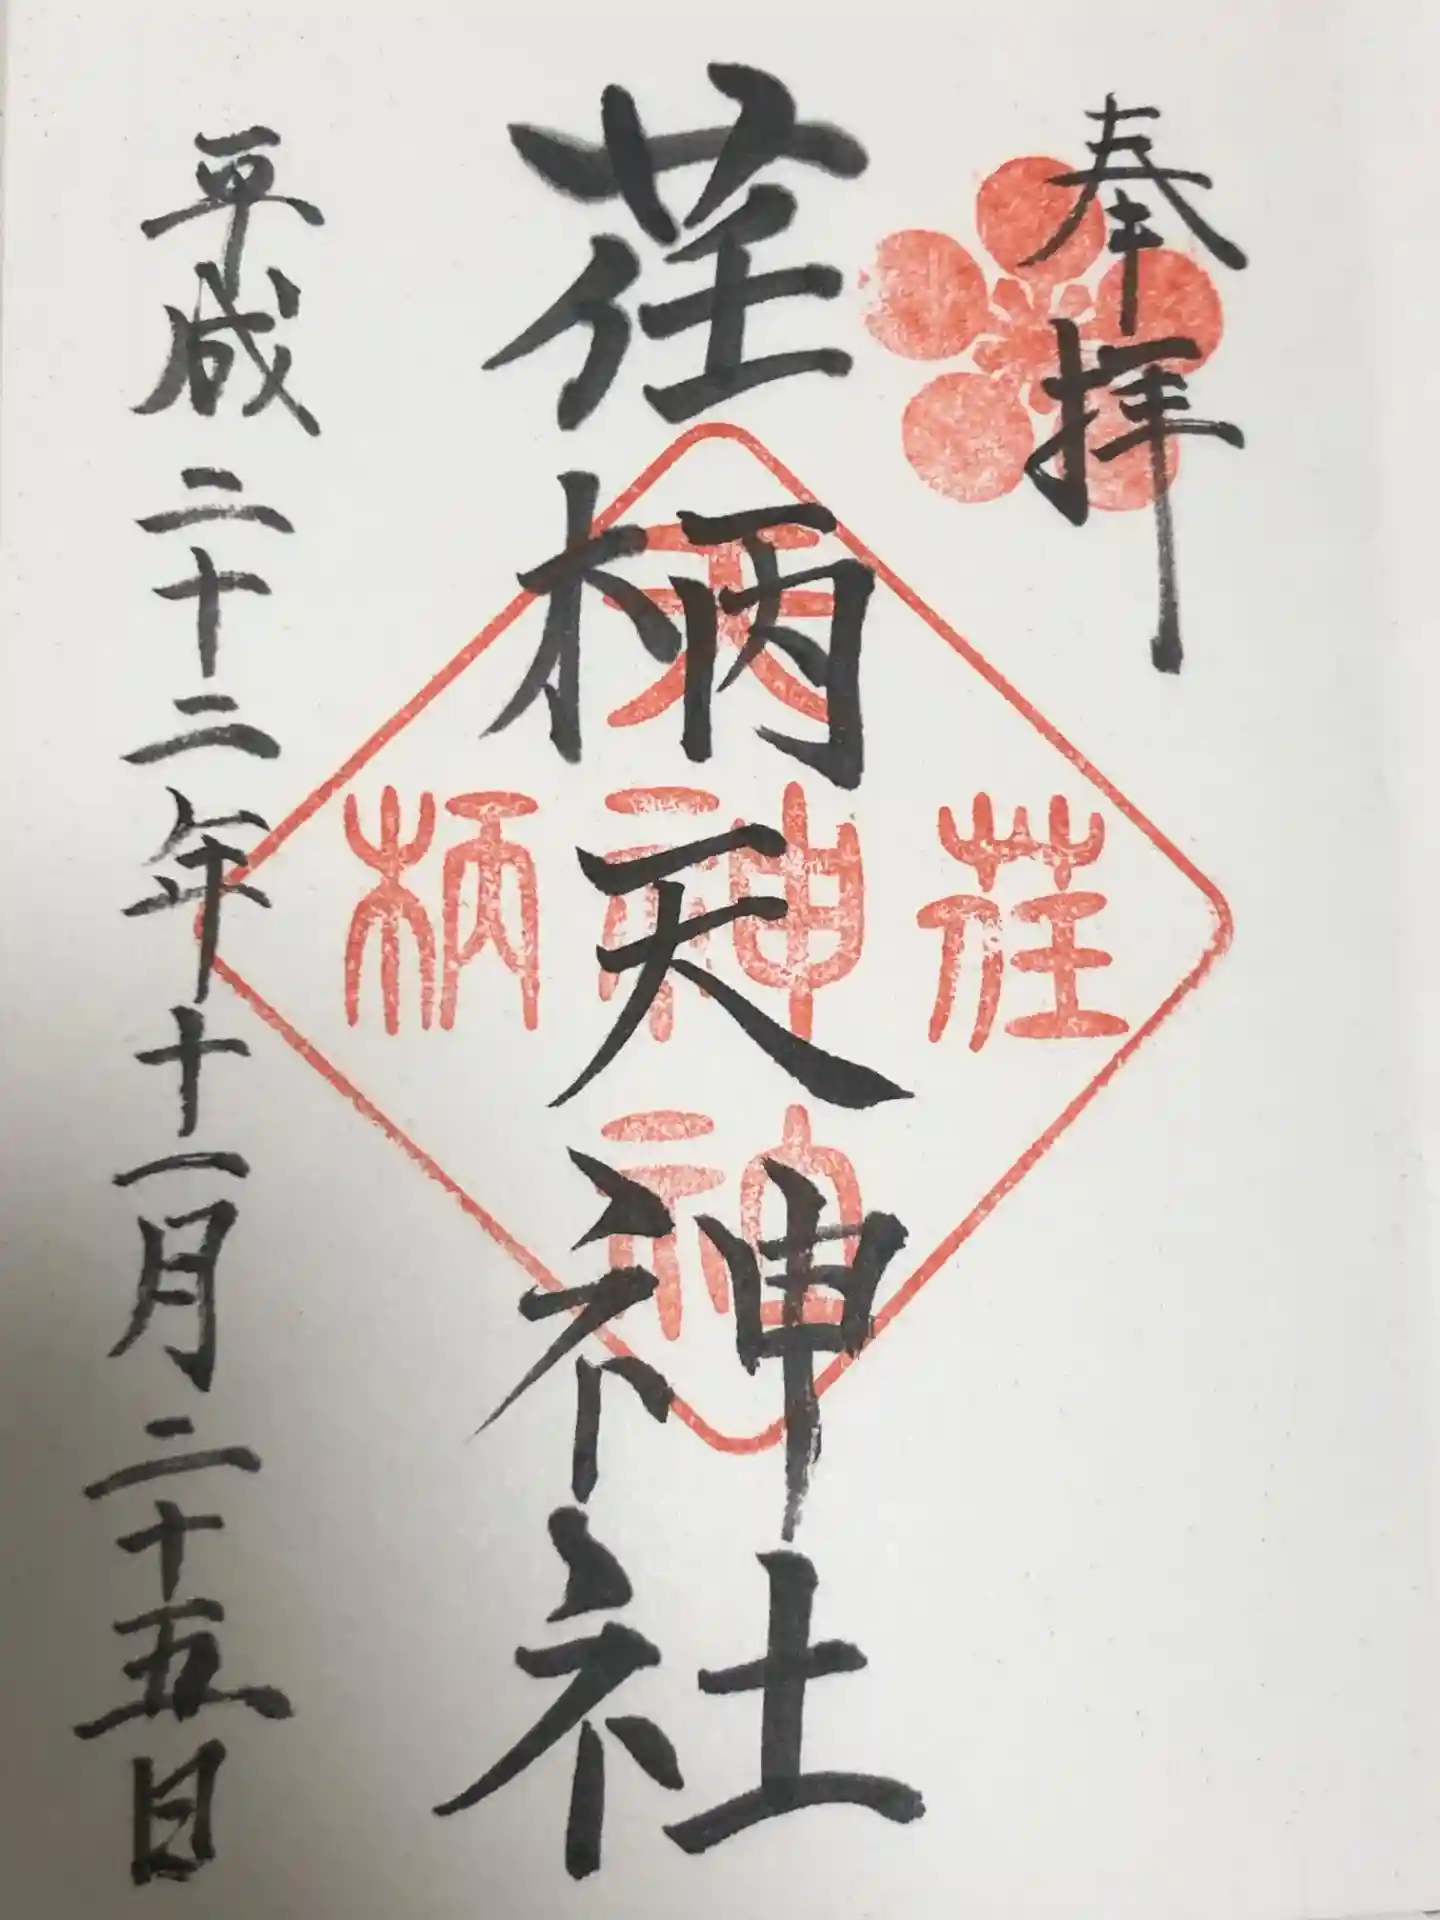 奉拝
荏柄天神社
平成二十二年十一月二十五日
荏
天
神
神
柄